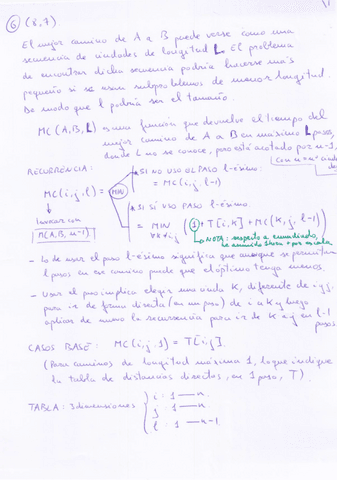 ⑥ (8,7)
El mejor camino de A a B puede verse como una
secuencia de ciudades de longitud L. El problema
de encontrar dicha secuencia podría hacerse más
pequeño si se usan subproblemas de menor longitud.
De modo que l podría ser el tamaño.
MC(A,B,L) es una función que devuelve el tiempo del
mejor camino de A a B en máximo L pasos,
donde L no se conoce, pero está acotado por n-1,
con n = nº ciudades
RECURRENCIA:
* SI NO USO EL PASO l-ésimo:
= MC(i,j,l-1)
MC(i,j,l) = MIN
* SI SÍ USO PASO l-ésimo:
= MIN ∀k≠i,j (1 + T[i,k] + MC(k,j,l-1))
Invocar con
MC(A,B,n-1)
NOTA: respecto a enunciado,
he asumido 1 hora + por escala
- Lo de usar el paso l-ésimo significa que aunque se permitan
l pasos en ese camino puede que el óptimo tenga menos.
- Usar el paso implica elegir una ciudad k, diferente de i y j,
para ir de forma directa (en un paso) de i a k y luego
aplicar de nuevo la recurrencia para ir de k a j en l-1
pasos
CASOS BASE: MC(i,j,1) = T[i,j].
(Para caminos de longitud máxima 1, lo que indique
la tabla de distancias directas, en 1 paso, T).
TABLA: 3 dimensiones
i : 1 — n.
j : 1 — n.
l : 1 — n-1